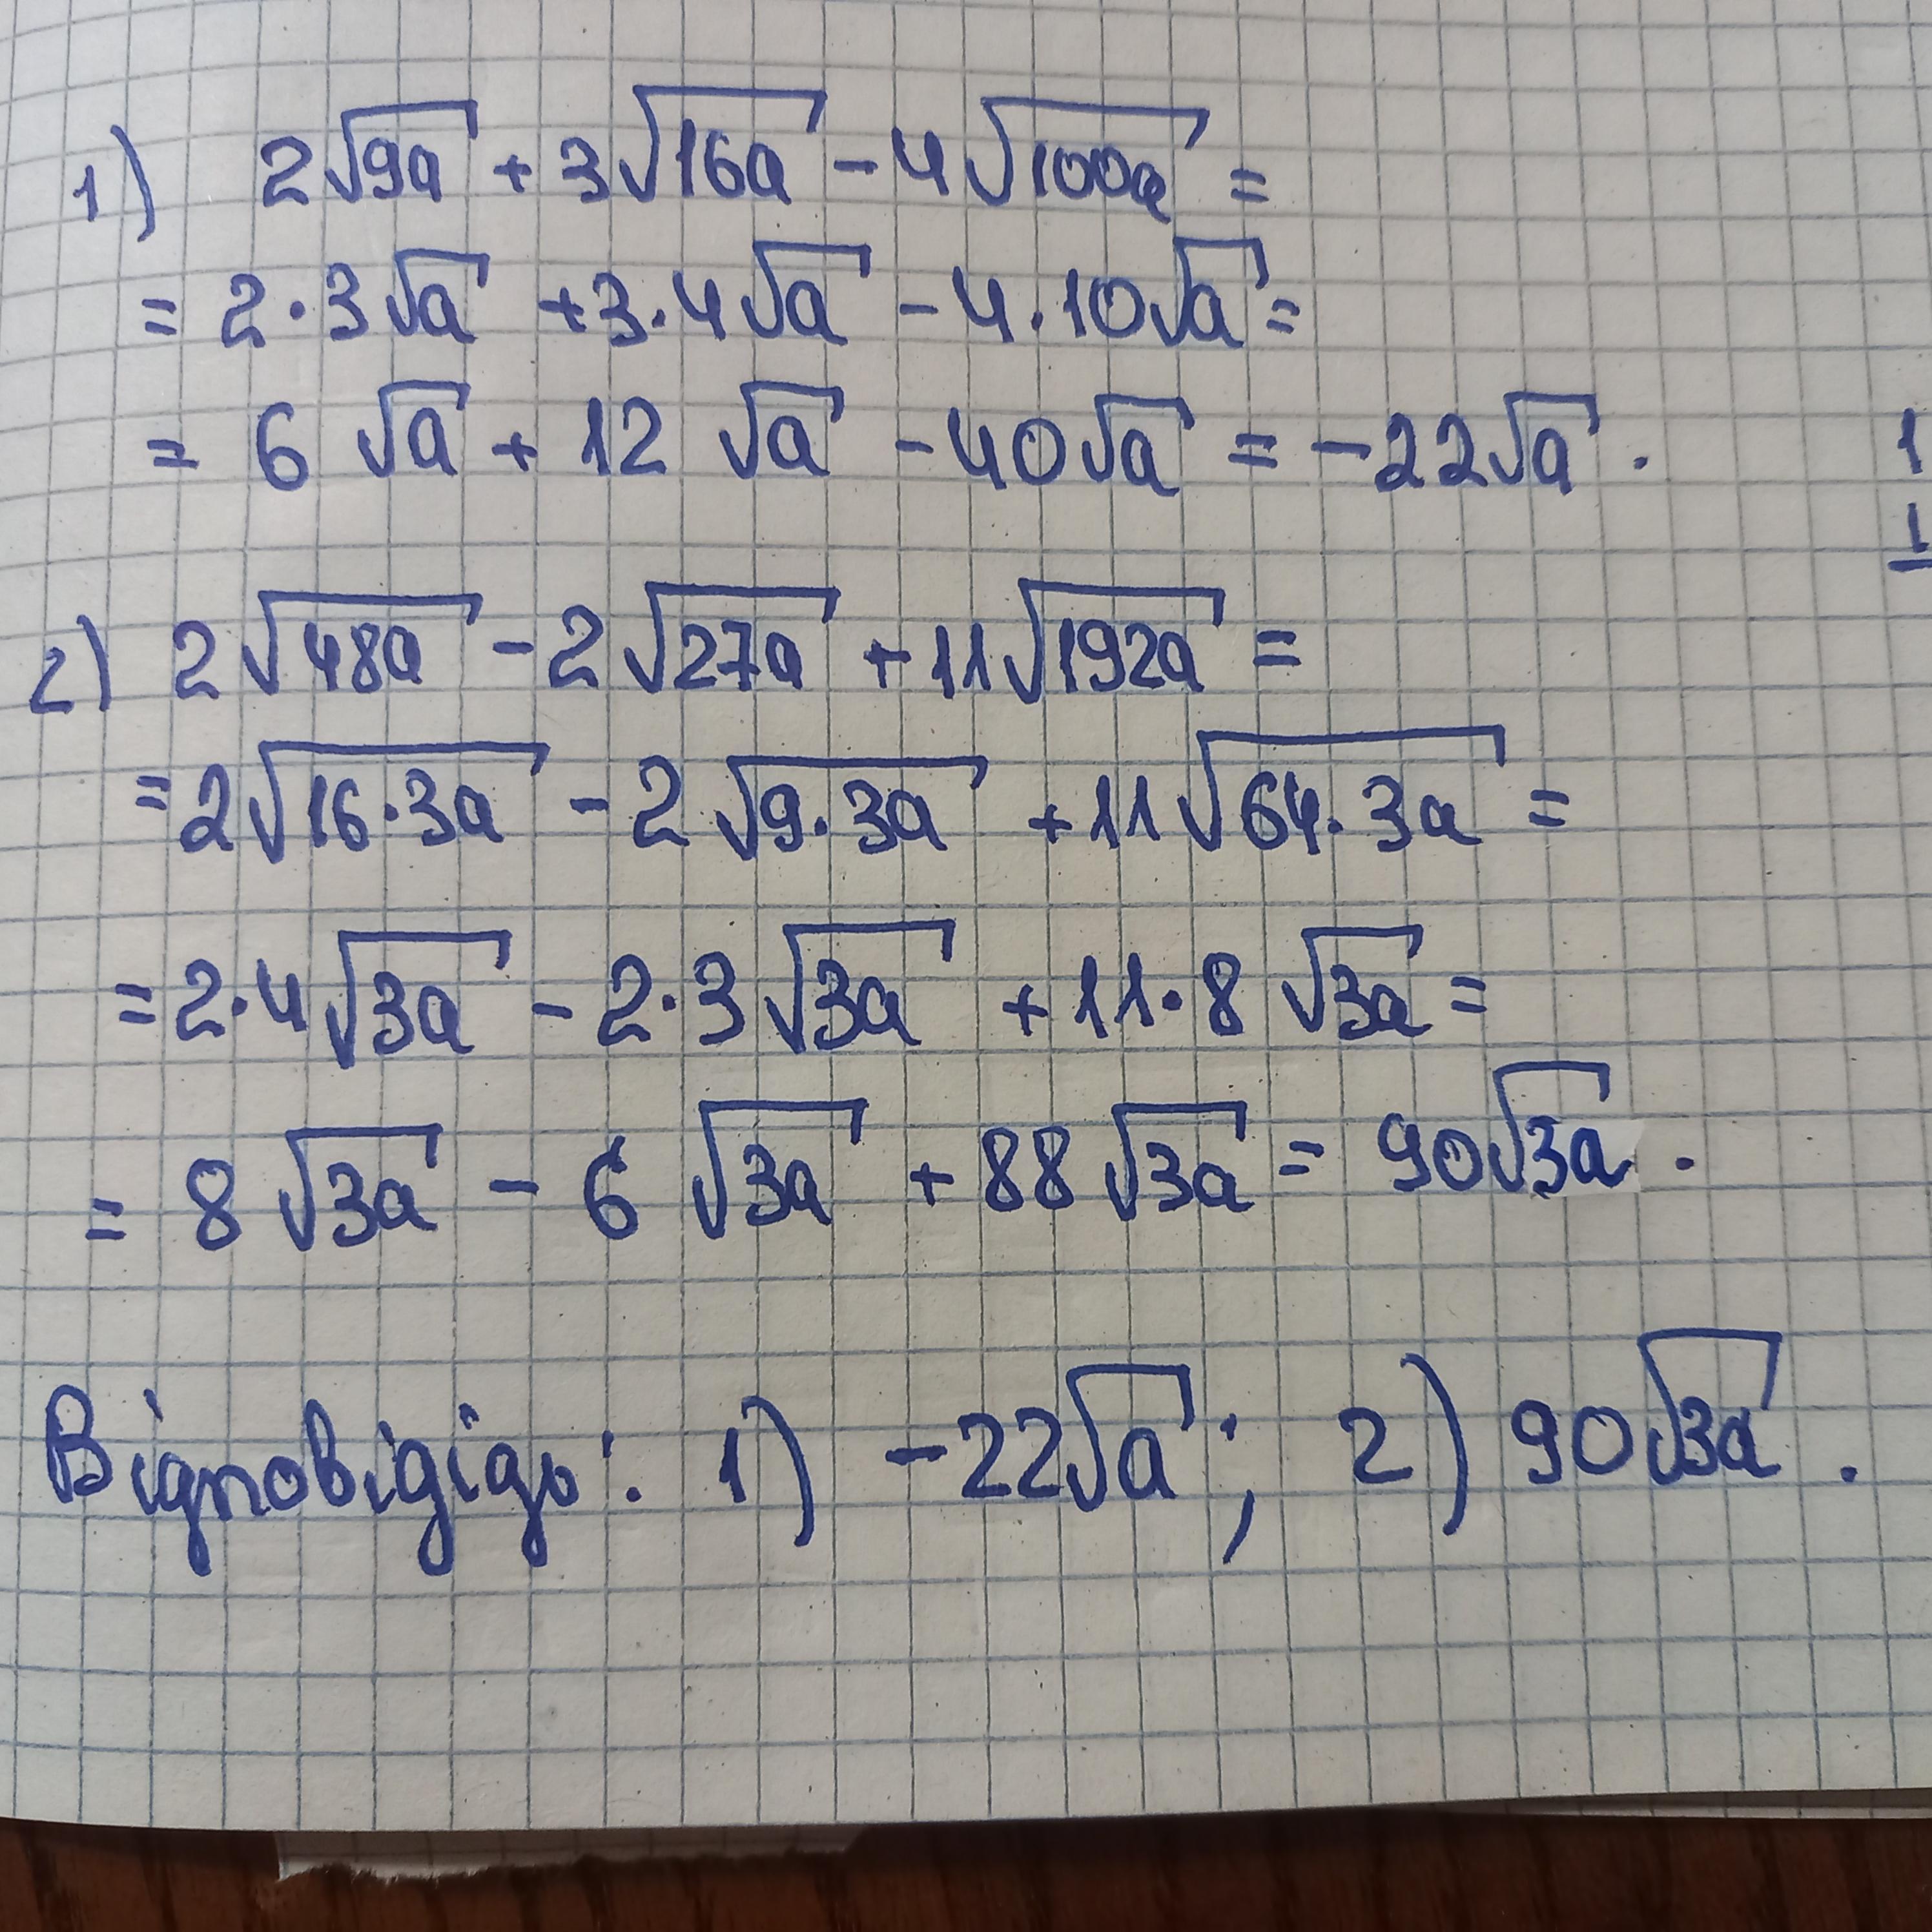 1) 2√9a + 3√16a - 4√100a =
= 2·3√a + 3·4√a - 4·10√a =
= 6√a + 12√a - 40√a = -22√a.
2) 2√48a - 2√27a + 11√192a =
= 2√16·3a - 2√9·3a + 11√64·3a =
= 2·4√3a - 2·3√3a + 11·8√3a =
= 8√3a - 6√3a + 88√3a = 90√3a.
Відповідідь: 1) -22√a; 2) 90√3a.